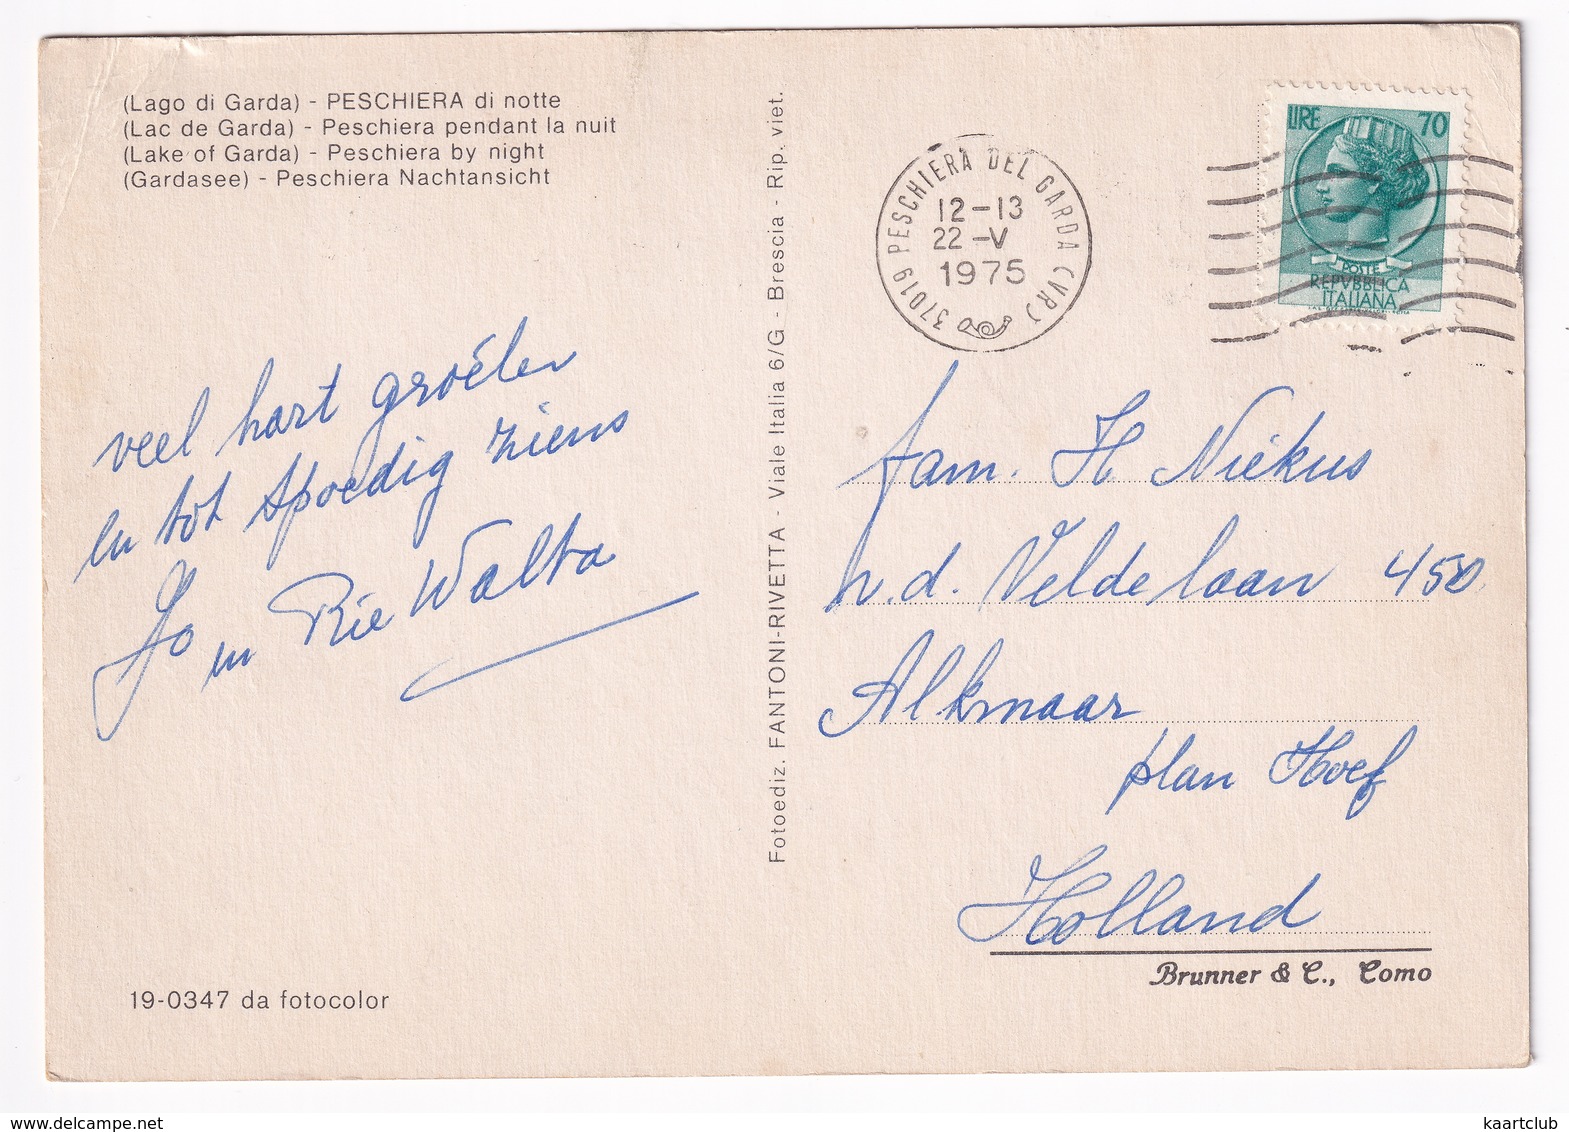 (Lago di Garda) - PESCHIERA di notte
(Lac de Garda) - Peschiera pendant la nuit
(Lake of Garda) - Peschiera by night
(Gardasee) - Peschiera Nachtansicht
veel hart groeten
en tot spoedig ziens
Jo en Rie Walta
19-0347 da fotocolor
Fotoediz. FANTONI-RIVETTA - Viale Italia 6/G - Brescia - Rip. viet.
37019 PESCHIERA DEL GARDA (VR)
12-13
22-V
1975
LIRE 70
POSTE
REPVBBLICA
ITALIANA
fam. H Niekus
v.d. Veldelaan 450
Alkmaar
plan Hoef
Holland
Brunner & C., Como
kaartclub